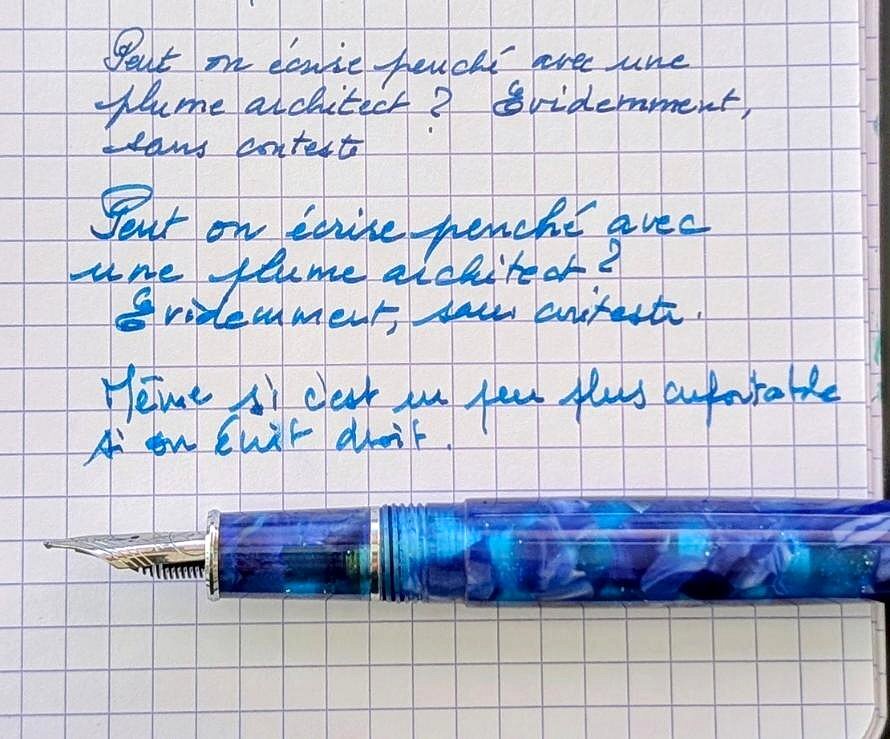 Peut on écrire penché avec une
plume architect ? Evidemment,
sans conteste
Peut on écrire penché avec
une plume architect ?
Evidemment, sans conteste.
Même si c'est un peu plus confortable
si on écrit droit.